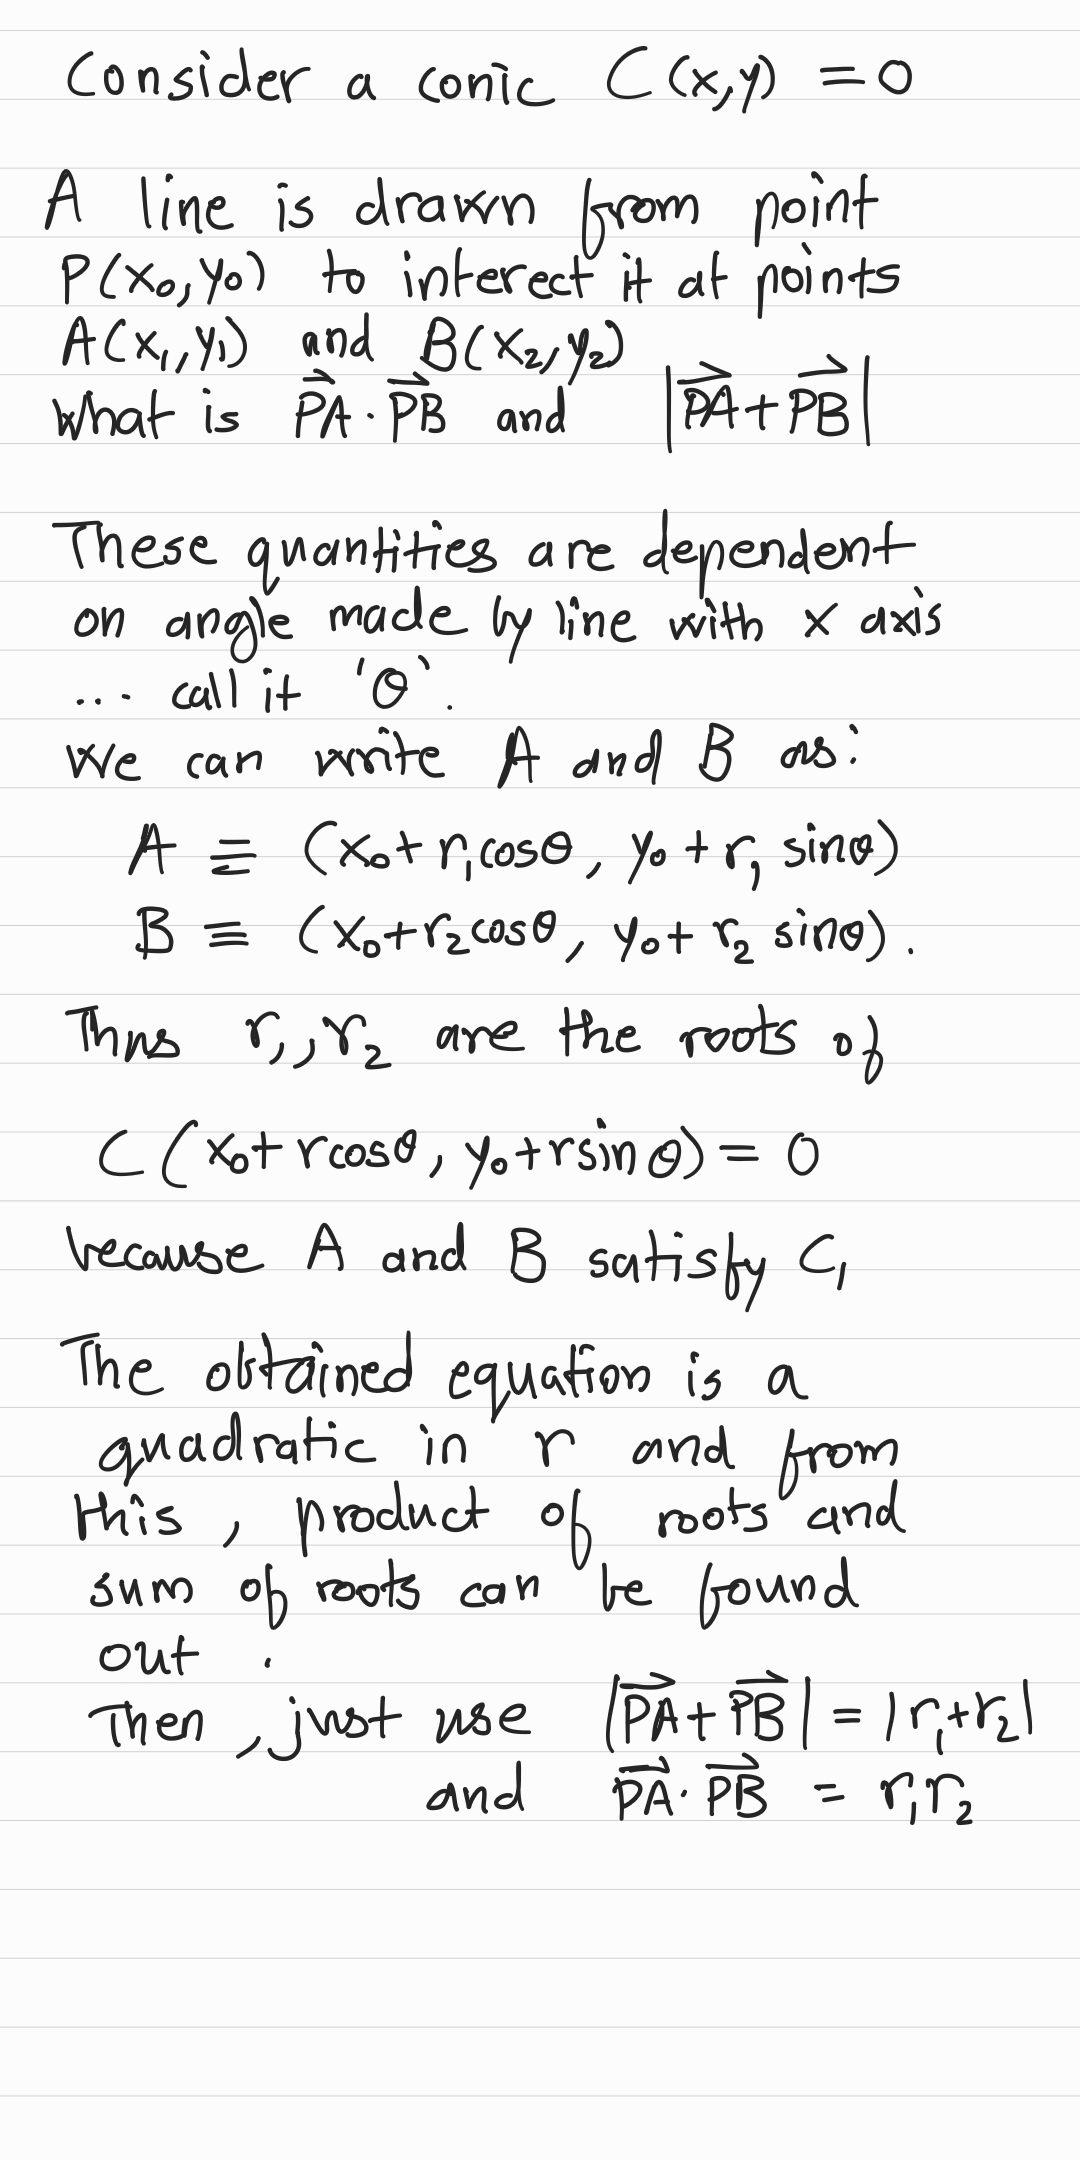 Consider a conic C(x,y) = 0
A line is drawn from point
P(x₀,y₀) to interect it at points
A(x₁,y₁) and B(x₂,y₂)
What is PA⃗ · PB⃗ and |PA⃗ + PB⃗|
These quantities are dependent
on angle made by line with x axis
... call it 'θ'.
We can write A and B as:
A ≡ (x₀+r₁cosθ, y₀+r₁ sinθ)
B ≡ (x₀+r₂cosθ, y₀+r₂ sinθ).
Thus r₁,r₂ are the roots of
C(x₀+rcosθ, y₀+rsinθ) = 0
because A and B satisfy C,
The obtained equation is a
quadratic in r and from
this, product of roots and
sum of roots can be found
out.
Then, just use |PA⃗ + PB⃗| = |r₁+r₂|
and PA⃗ · PB⃗ = r₁r₂